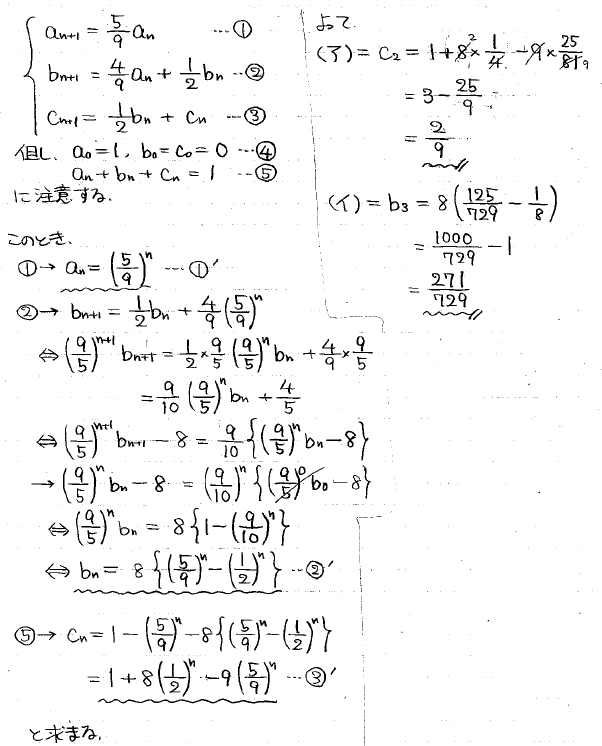 a_{n+1} = \frac{5}{9} a_n … ①
b_{n+1} = \frac{4}{9} a_n + \frac{1}{2} b_n … ②
c_{n+1} = \frac{1}{2} b_n + c_n … ③
但し、a_0 = 1, b_0 = c_0 = 0 … ④
a_n + b_n + c_n = 1 … ⑤
に注意する.
このとき.
① → a_n = (\frac{5}{9})^n … ①'
② → b_{n+1} = \frac{1}{2} b_n + \frac{4}{9} (\frac{5}{9})^n
⇔ (\frac{9}{5})^{n+1} b_{n+1} = \frac{1}{2} × \frac{9}{5} (\frac{9}{5})^n b_n + \frac{4}{9} × \frac{9}{5}
= \frac{9}{10} (\frac{9}{5})^n b_n + \frac{4}{5}
⇔ (\frac{9}{5})^{n+1} b_{n+1} - 8 = \frac{9}{10} {(\frac{9}{5})^n b_n - 8}
→ (\frac{9}{5})^n b_n - 8 = (\frac{9}{10})^n {(\frac{9}{5})^0 b_0 - 8}
⇔ (\frac{9}{5})^n b_n = 8 {1 - (\frac{9}{10})^n}
⇔ b_n = 8 {(\frac{5}{9})^n - (\frac{1}{2})^n} … ②'
⑤ → c_n = 1 - (\frac{5}{9})^n - 8 {(\frac{5}{9})^n - (\frac{1}{2})^n}
= 1 + 8 (\frac{1}{2})^n - 9 (\frac{5}{9})^n … ③'
と求まる.
よって.
(ア) = c_2 = 1 + 8 2 × \frac{1}{4} - 9 × \frac{25}{81} 9
= 3 - \frac{25}{9}
= \frac{2}{9}
(イ) = b_3 = 8 (\frac{125}{729} - \frac{1}{8})
= \frac{1000}{729} - 1
= \frac{271}{729}